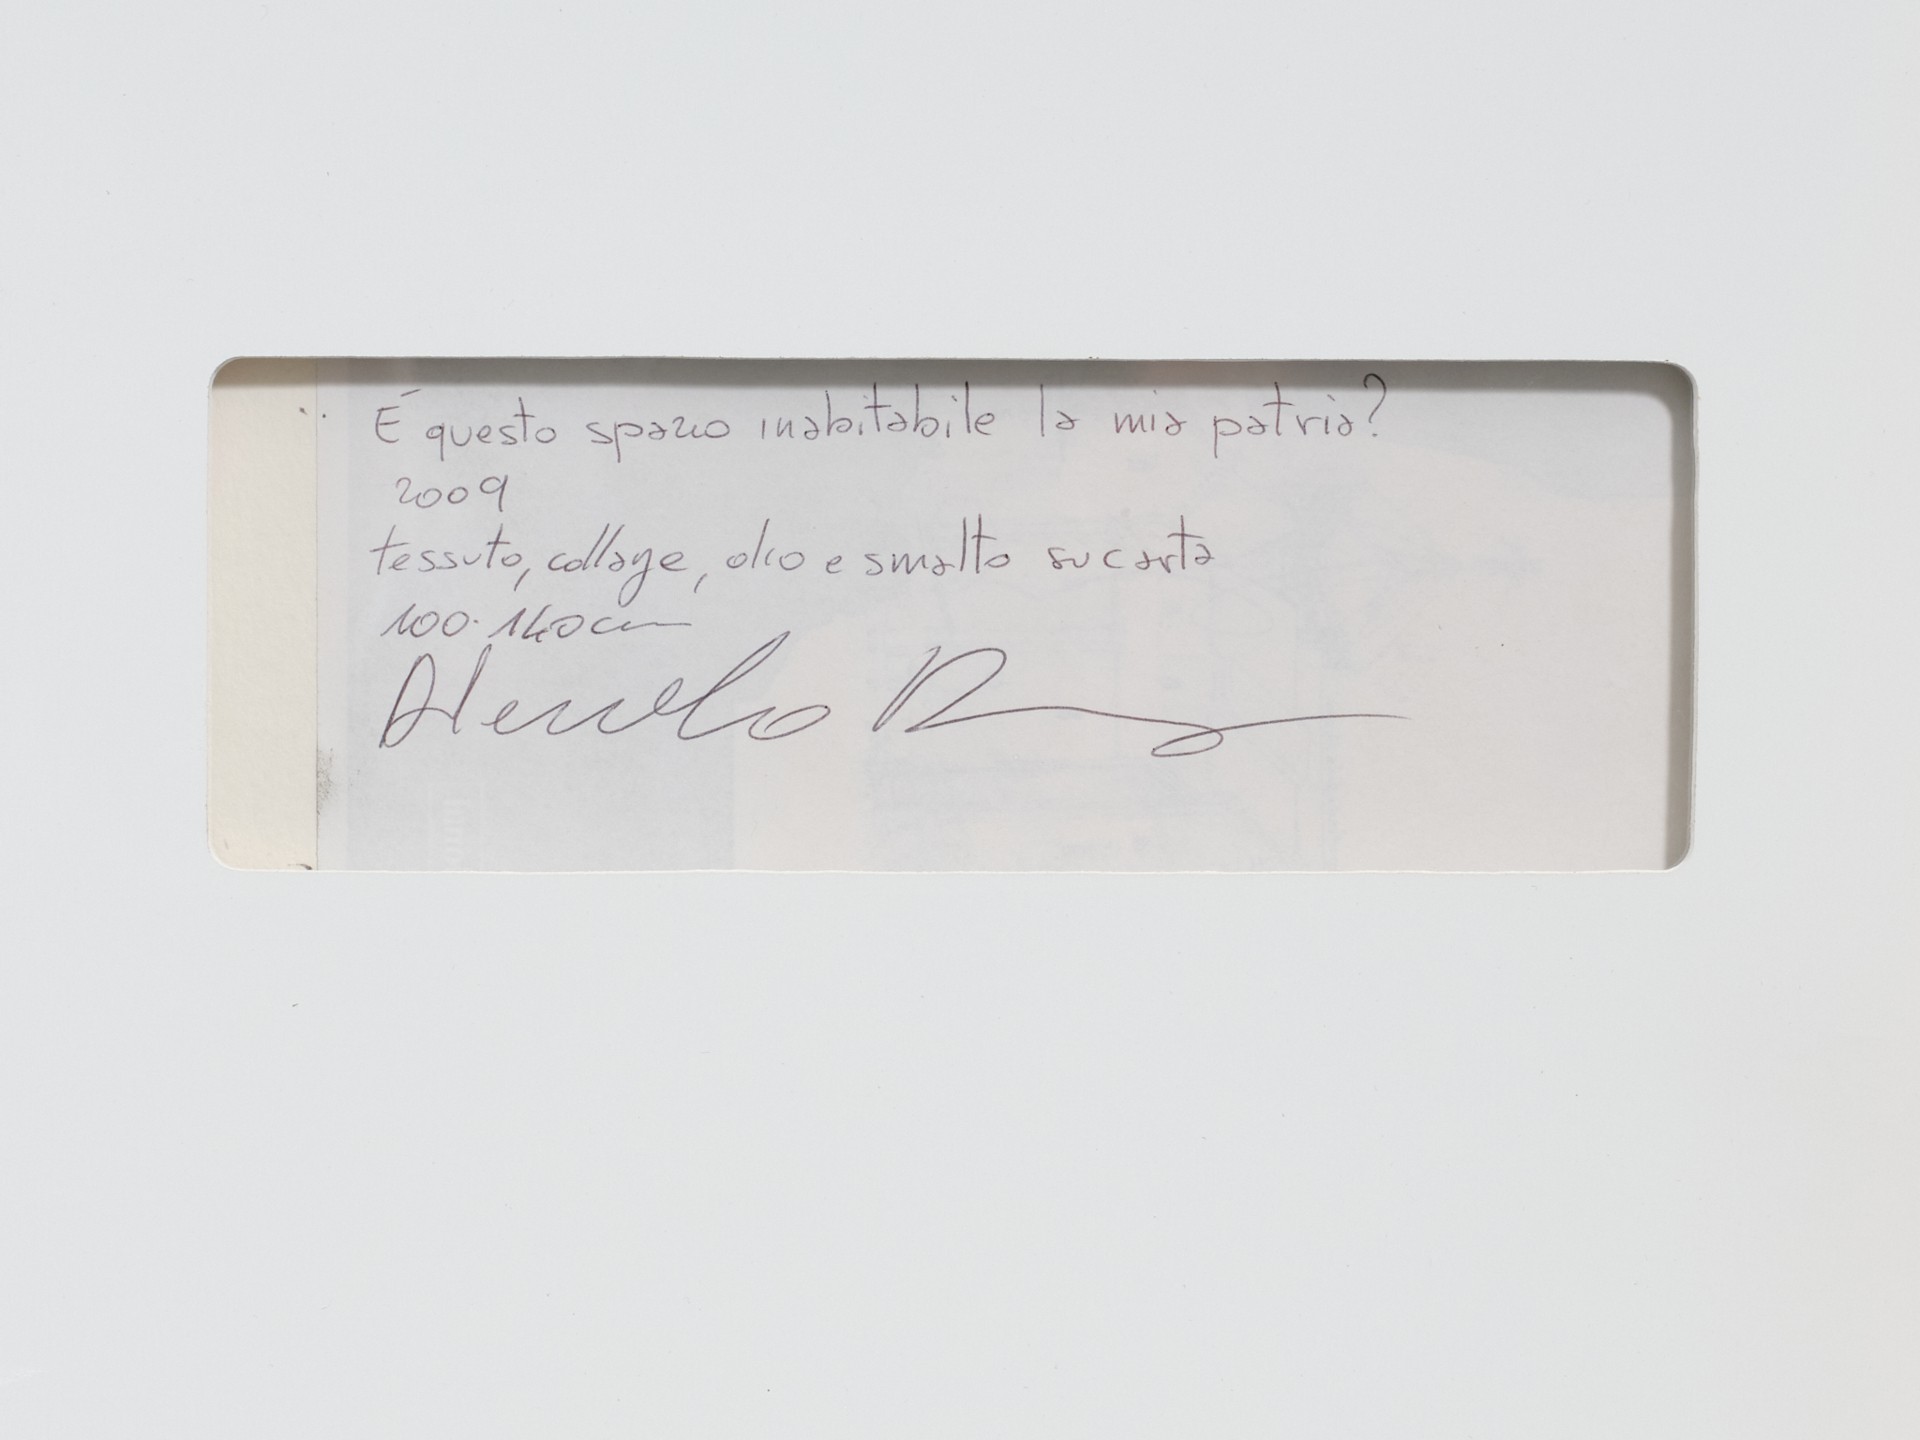 É questo spazio inabitabile la mia patria?
2009
tessuto, collage, olio e smalto su carta
100·140cm